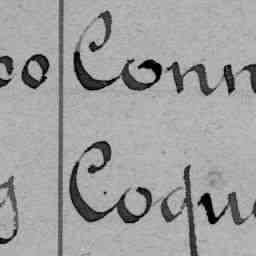 co Conn
g Coqu